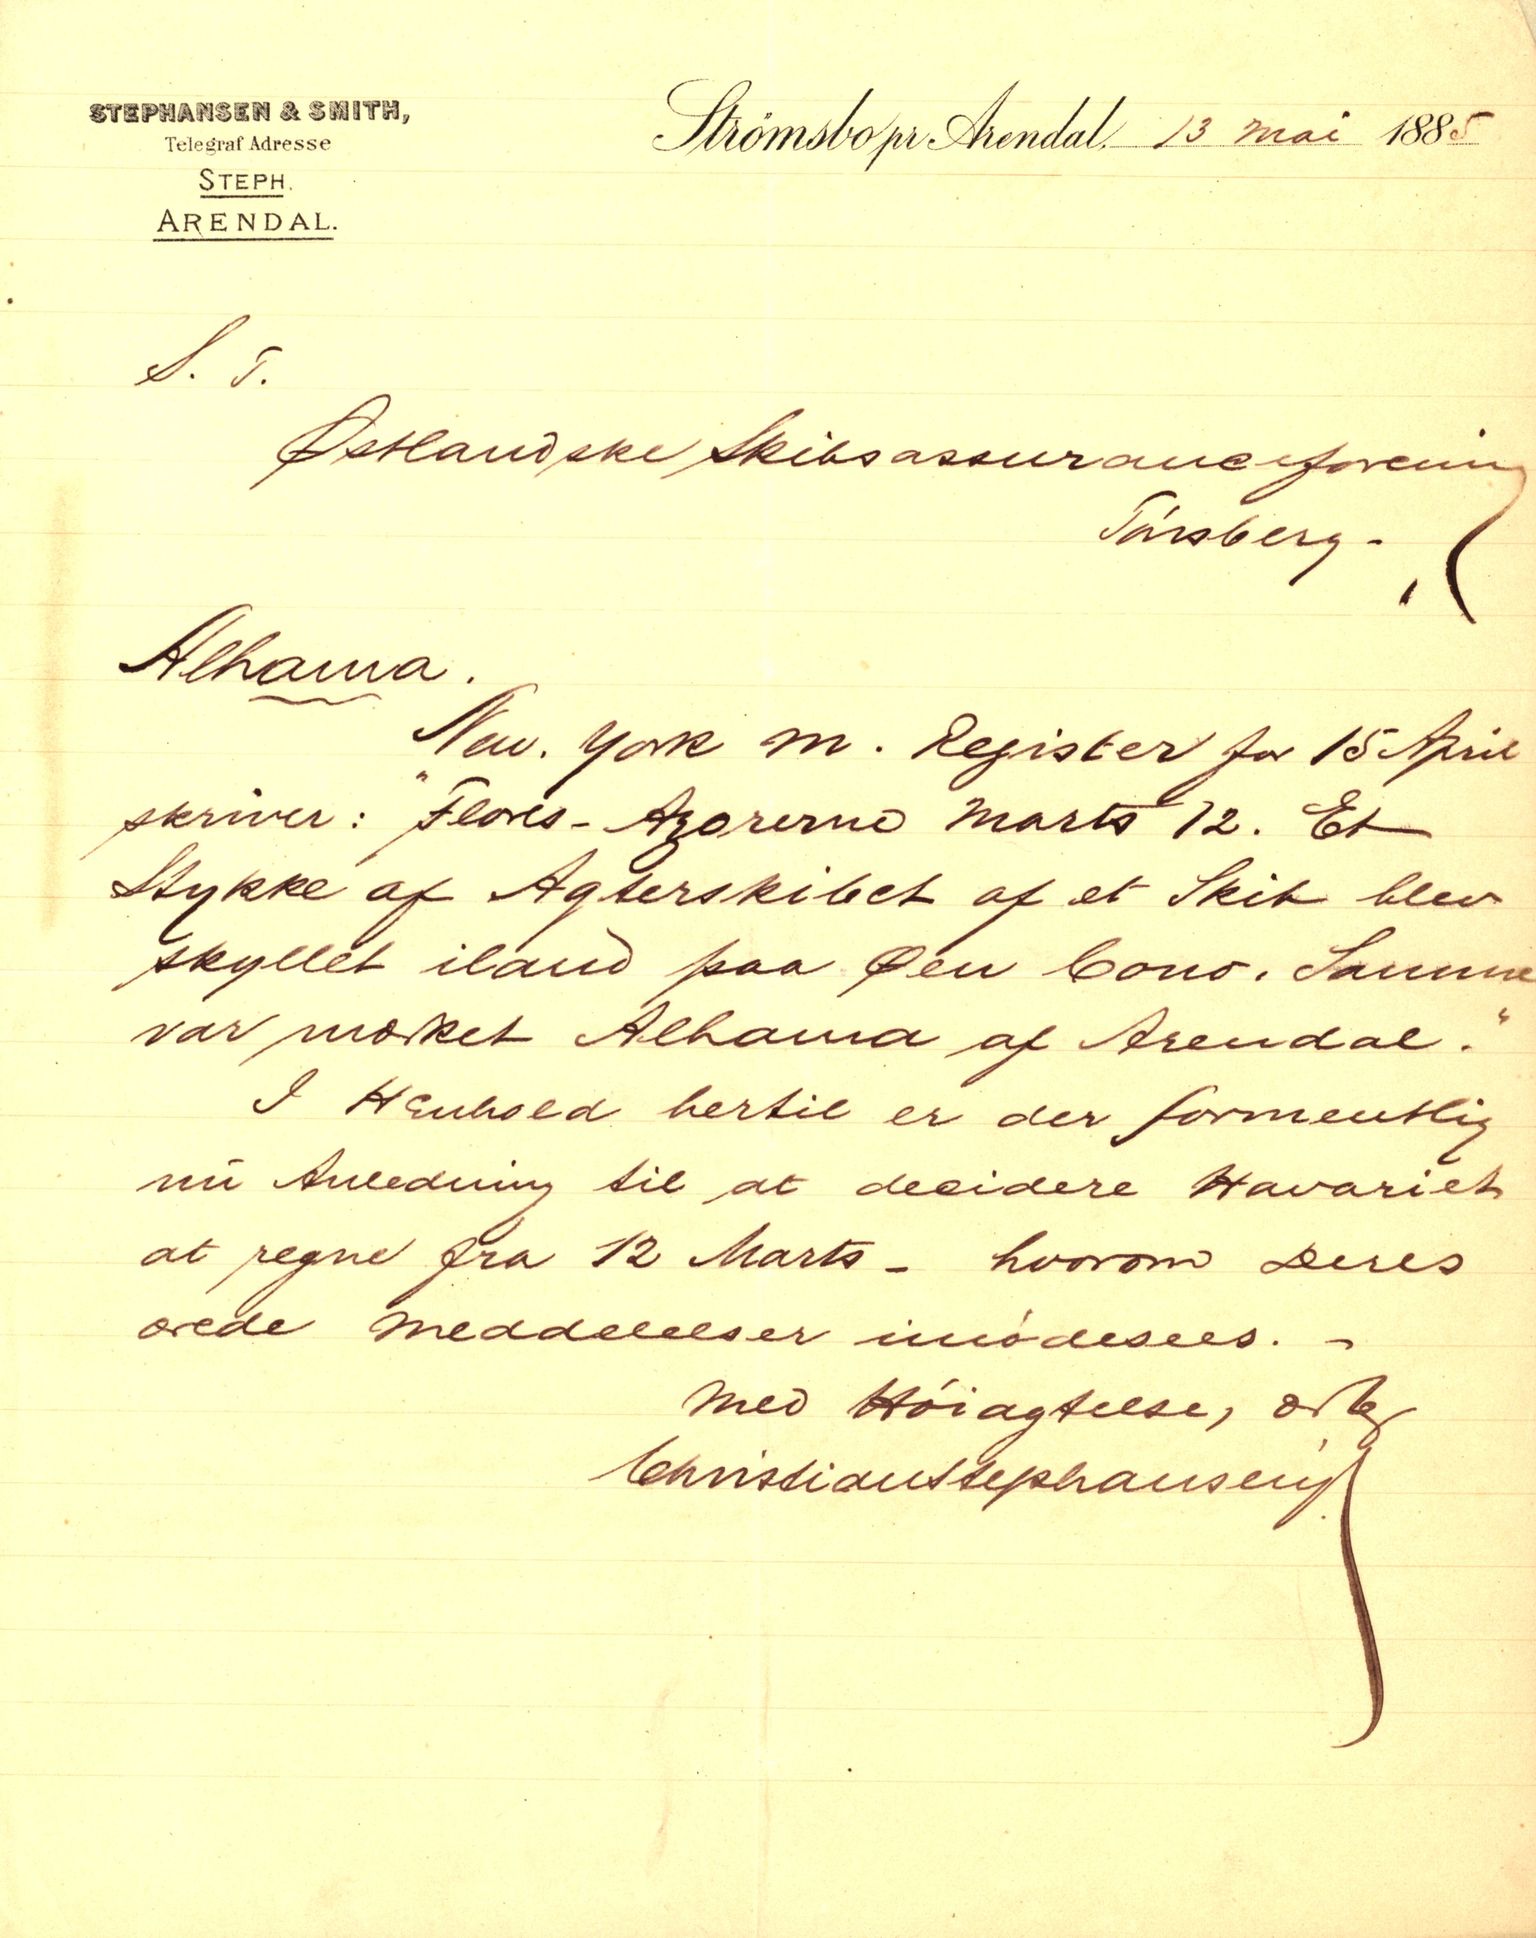 STEPHANSEN & SMITH,
Telegraf Adresse
STEPH.
ARENDAL.
Strömsbo pr Arendal, 13 Mai 1885
S. T.
Østlandske Skibsassuranceforening
Tónsberg -
Alhama.
New. York M. Register for 15 April
skriver: "Flores - Azorerne Marts 12. Et
Stykke af Agterskibet af et Skib blev
skyllet iland paa Øen Corvo. Samme
var mærket Alhama af Arendal."
I Henhold hertil er der formentlig
nu Anledning til at decidere Havariet
at regne fra 12 Marts - hvorom Deres
ærede Meddelelser imódesees. -
Med Hóiagtelse,
Christian Stephansen